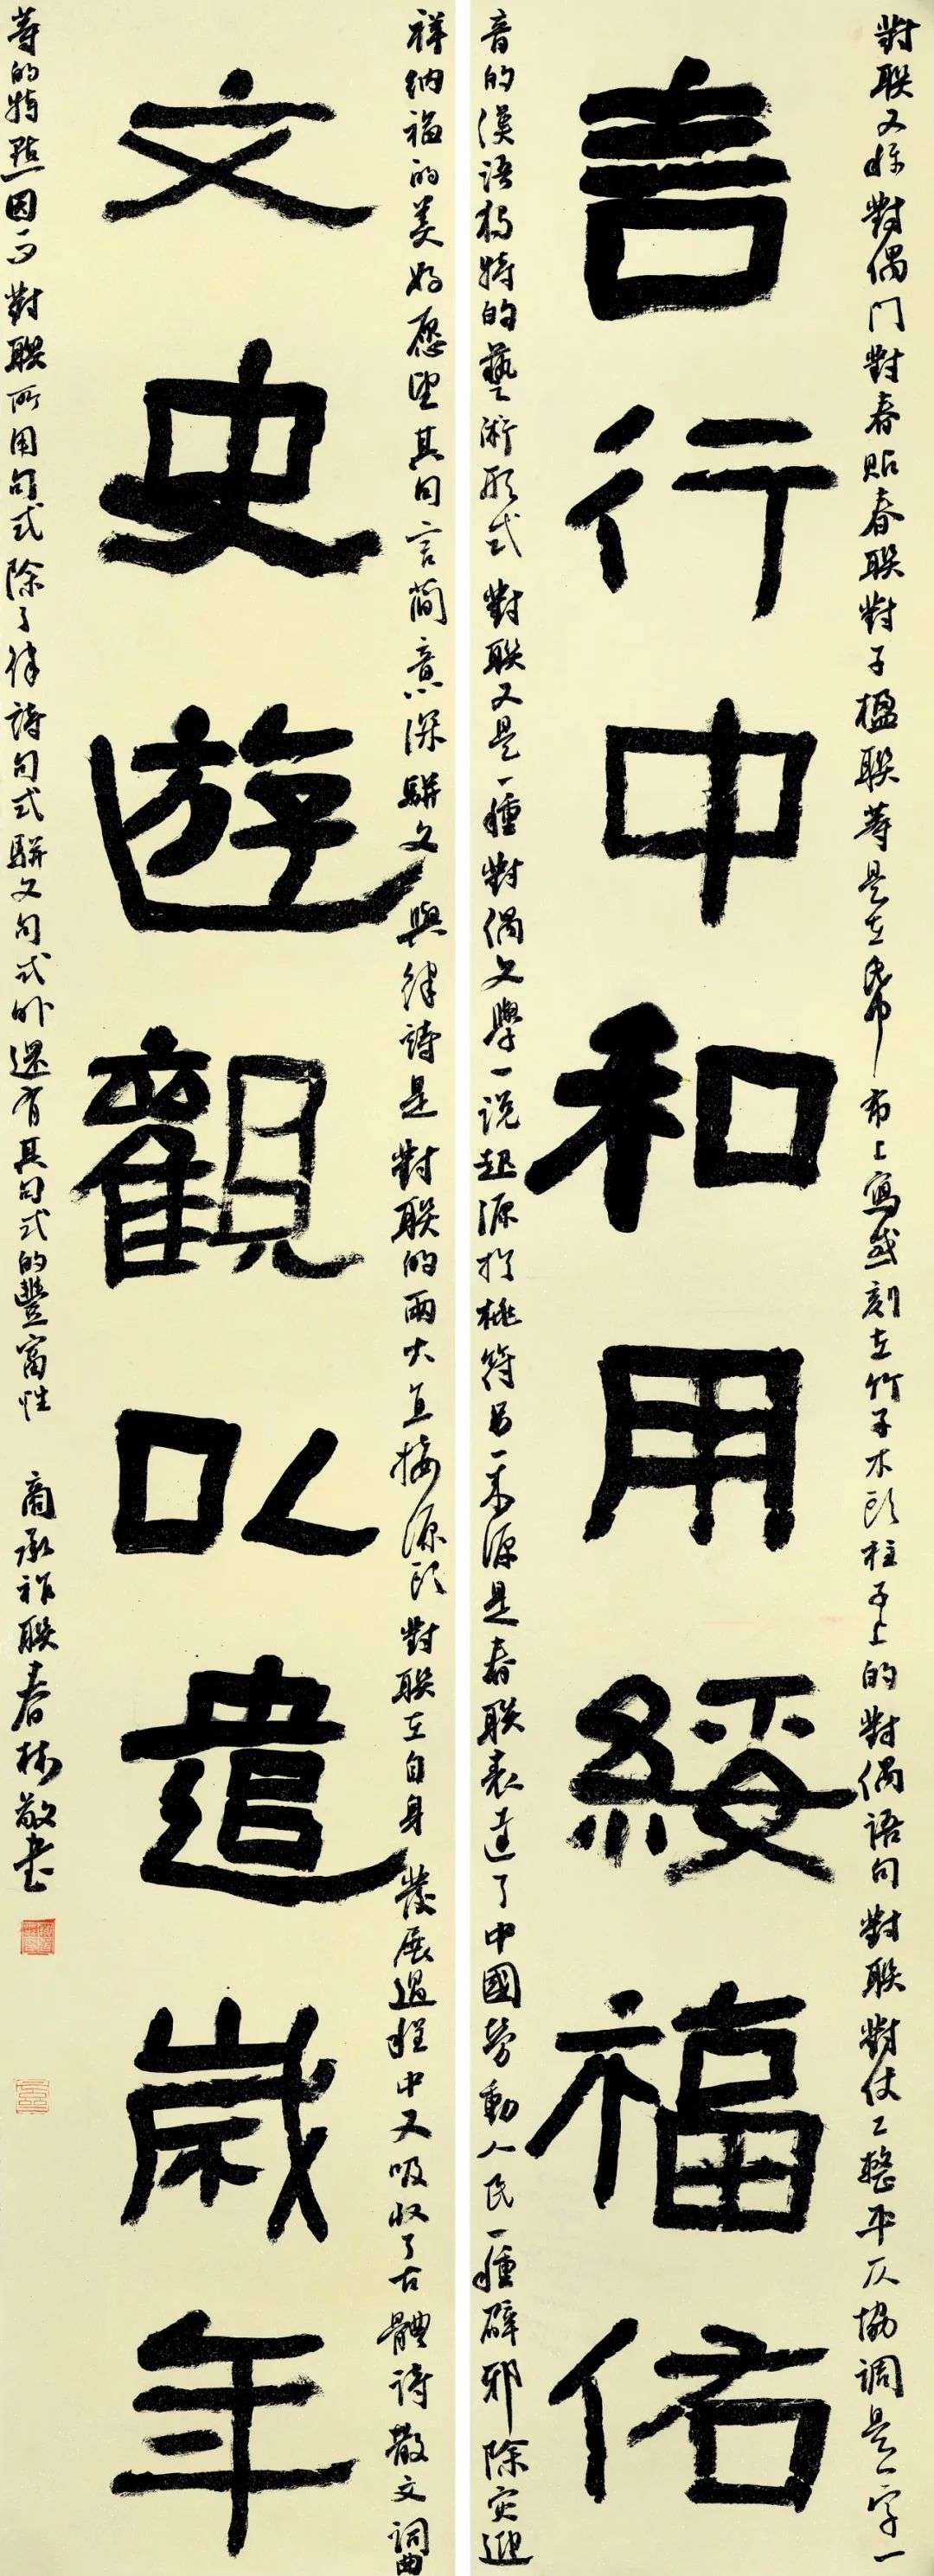 對聯又稱對偶門對春貼春聯對子楹聯等是在紙布上寫或刻在竹子木頭柱子上的對偶語句對聯對仗工整平仄協調是一字一
言行中和用綏福佑
音的漢語獨特的藝術形式對聯又是一種對偶文學一說起源於桃符另一來源是春聯表達了中國勞動人民一種辟邪除灾迎
祥納福的美好愿望其句言簡意深駢文與律詩是對聯的兩大直接源頭對聯在自身發展過程中又吸收了古體詩散文詞曲
文史遊觀以遣歲年
等的特點因而對聯所用句式除了律詩句式駢文句式外還有其句式的豐富性
商承祚聯春林敬書